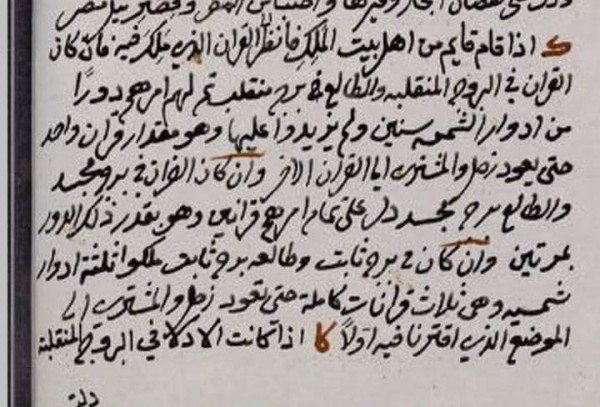 ك اذا قام قايم من اهل بيت الملك فانظر القران الذي ملك فيه فان كان
القران في البروج المنقلبه والطالع في برج منقلب تم لهم امرهم دورا
من ادوار الشمس سنين ولم يزيدوا عليها وهو مقدار قران واحد
حتى يعود زحل والمشترى الى القران الاخر وان كان القران في برج مجسد
والطالع برج مجسد دل على تمام امرهم قرانين وهو بقدر ذلك الدور
بمرتين وان كان في برج ثابت وطالعه برج ثابت ملكوا ثلثة ادوار
شمسيه وهى ثلاث قرانات كاملة حتى تعود زحل والمشترى الى
الموضع الذي اقترنا فيه اولاً كا اذا كانت الادلا في البروج المنقلبة
دلت